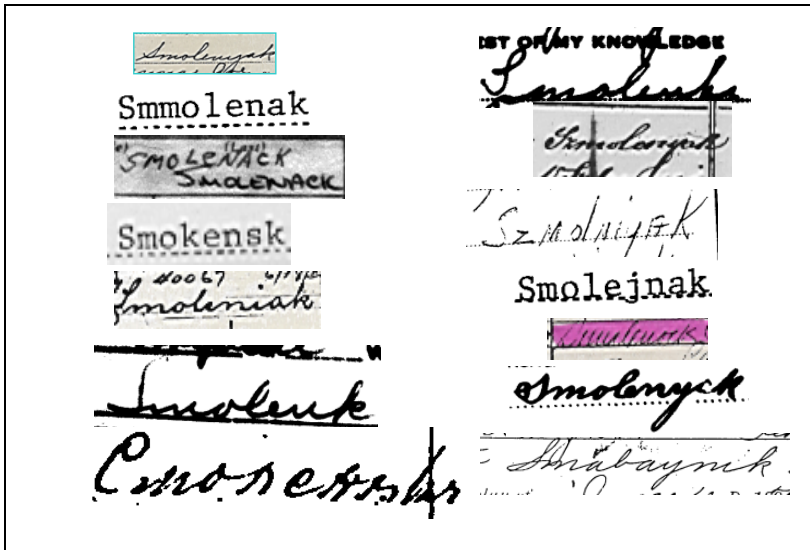 Smolenyak
Smmolenak
SMOLENACK
SMOLENACK
Smokensk
40067
Smoleniak
Smolenk
EST OF MY KNOWLEDGE
Smolenka
Szmolenyak
SzmolniyAK
Smolejnak
Smolenyck
Smabaynik